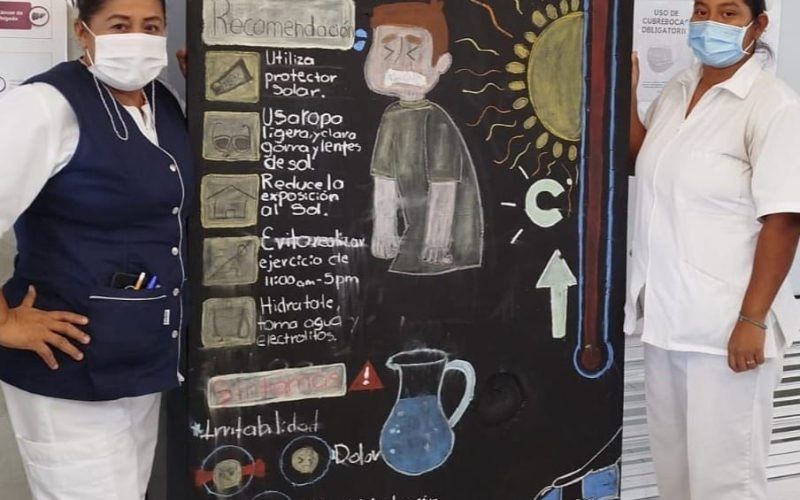 Cáncer de
hígado
USO DE
CUBREBOCAS
OBLIGATORIO
Recomendación
Utiliza
protector
solar.
Usa ropa
ligera, y clara
gorra y lentes
de sol.
Reduce la
exposición
al Sol.
Evita realizar
ejercicio de
11:00 am-5pm
Hidratate,
toma agua y
electrolitos.
C
Síntomas
*Irritabilidad
Dolor